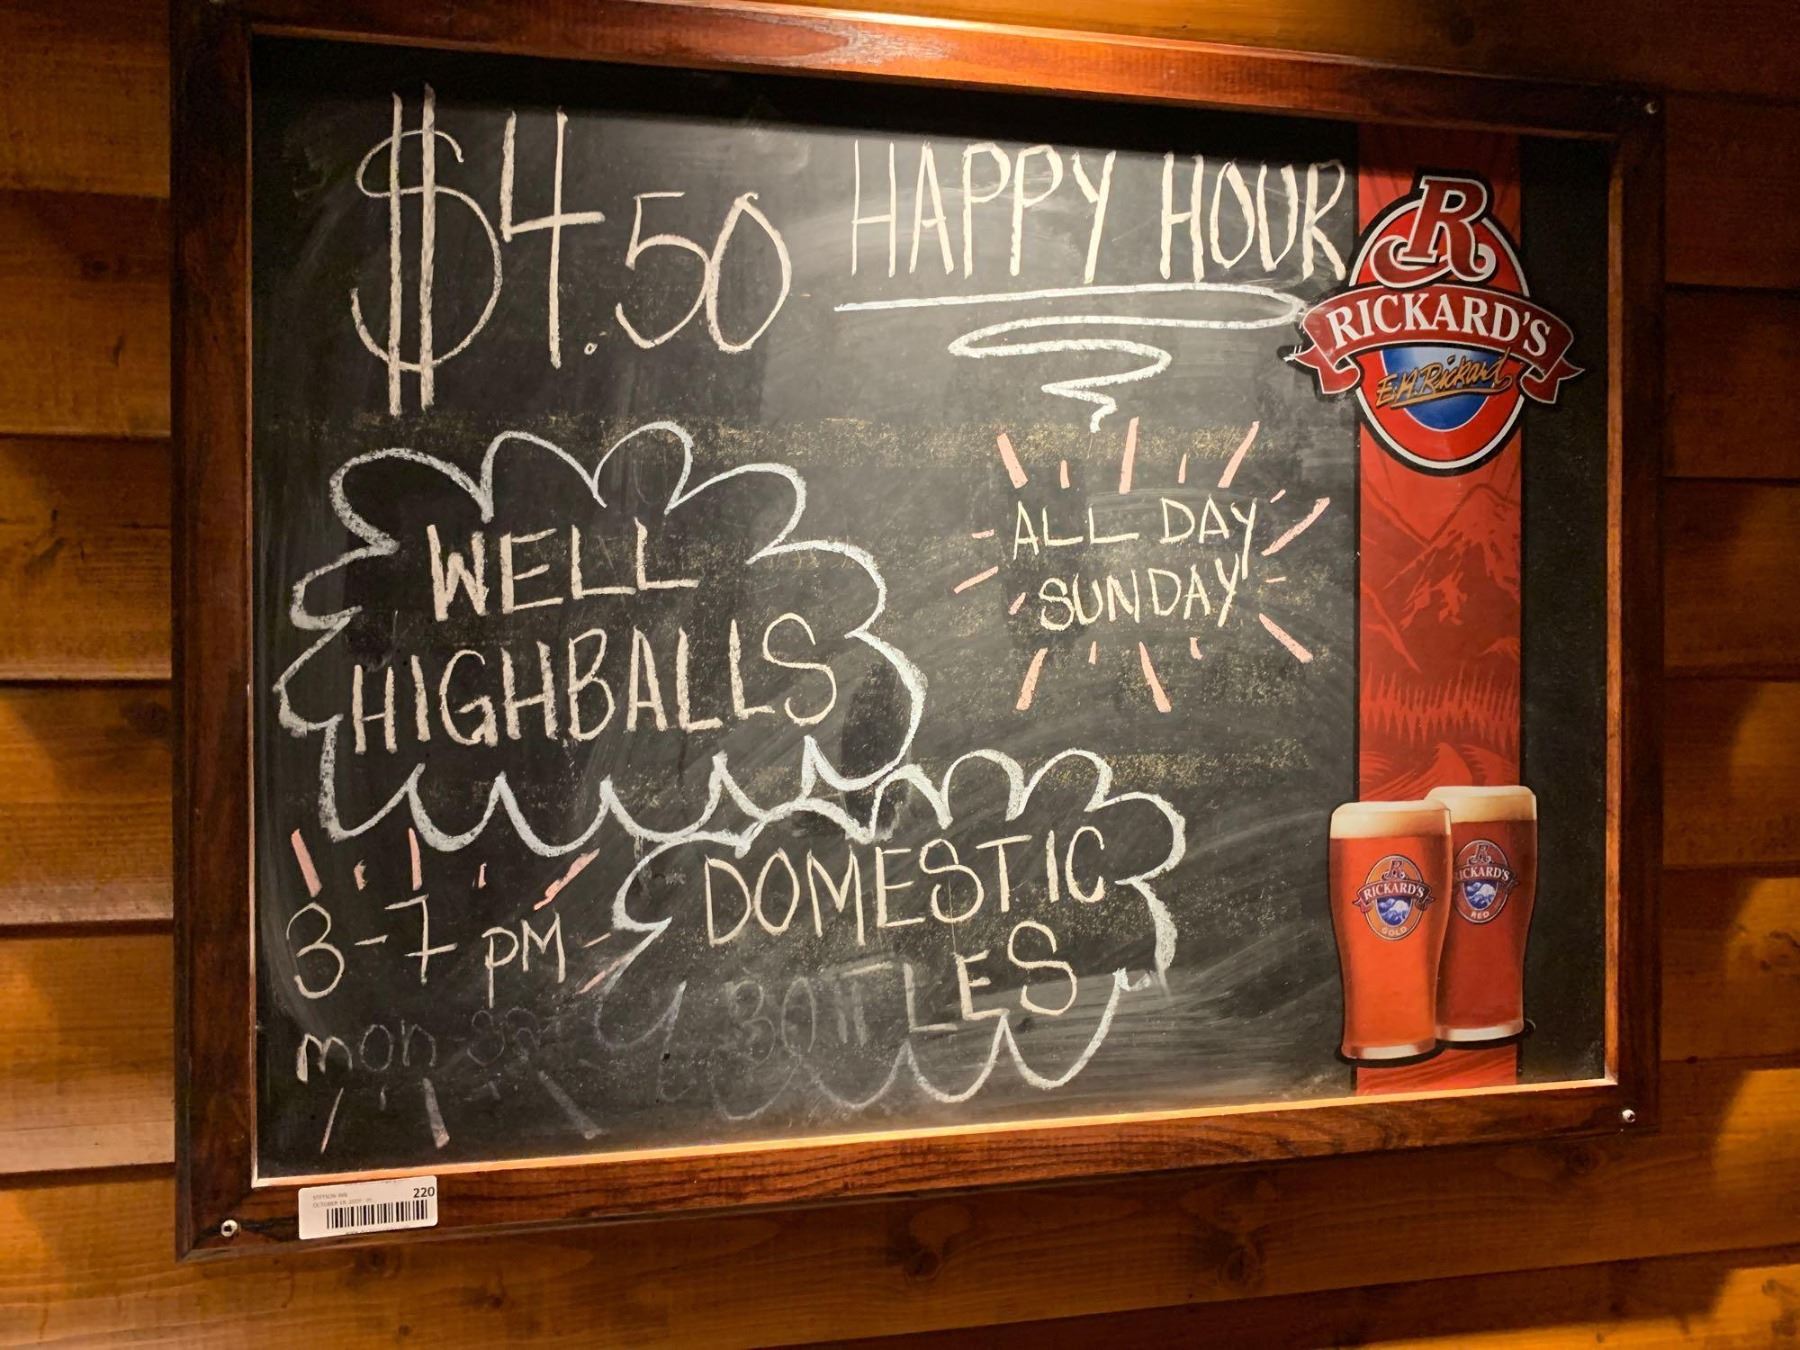 $4.50
HAPPY HOUR
ALL DAY
SUNDAY
WELL
HIGHBALLS
3-7 PM
mon-Sat
DOMESTIC
BOTTLES
R
RICKARD'S
E.H. Rickard
R
RICKARD'S
GOLD
R
RICKARD'S
RED
220